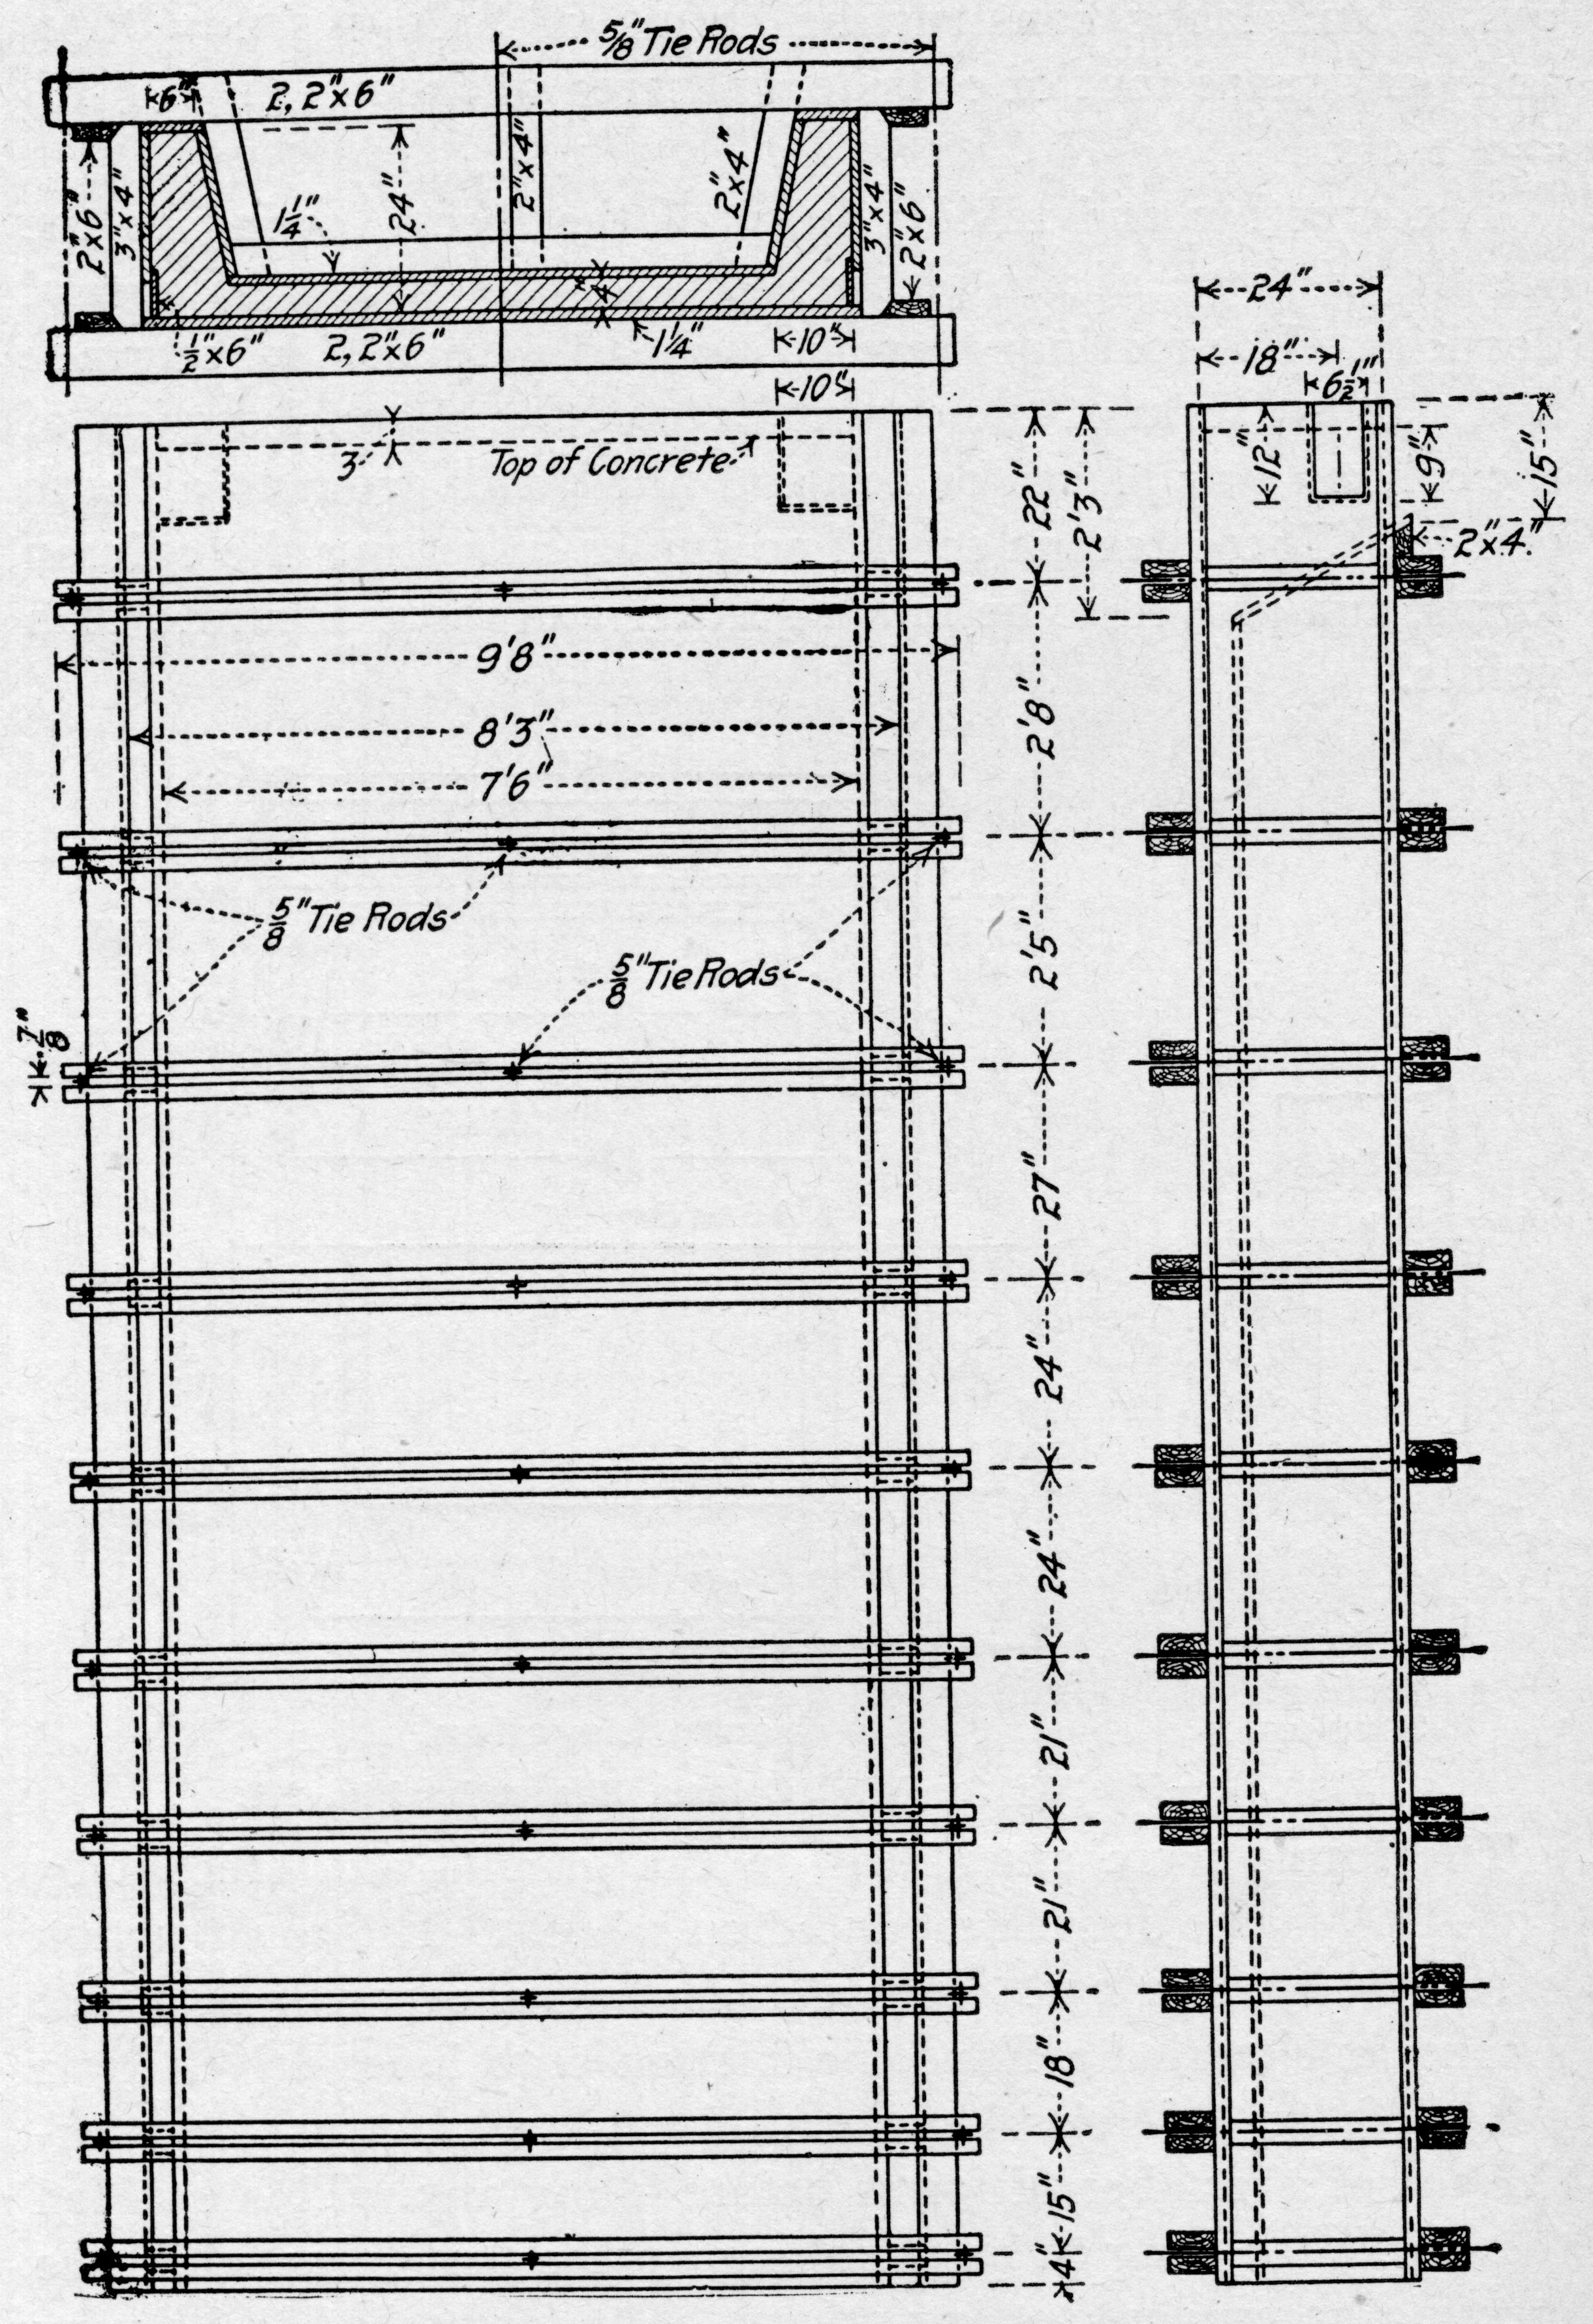 5/8" Tie Rods
6"
2, 2"x6"
2"x6"
3"x4"
1 1/4"
24"
2"x4"
2"x4"
3"x4"
2"x6"
4"
1/2"x6"
2, 2"x6"
1 1/4"
10"
10"
3"
Top of Concrete
9'8"
8'3"
7'6"
5/8" Tie Rods
5/8" Tie Rods
7/8"
22"
2'3"
2'8"
2'5"
27"
24"
24"
21"
21"
18"
15"
4"
24"
18"
6 1/2"
12"
9"
15"
2"x4"